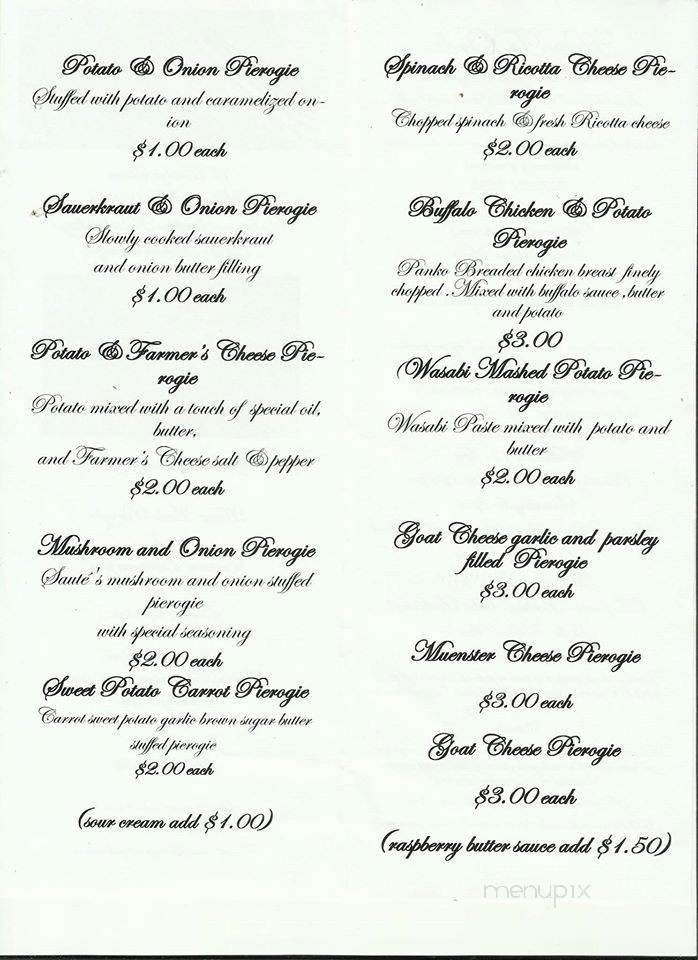 Potato & Onion Pierogie
Stuffed with potato and caramelized on-
ion
$1.00 each
Sauerkraut & Onion Pierogie
Slowly cooked sauerkraut
and onion butter filling
$1.00 each
Potato & Farmer's Cheese Pie-
rogie
Potato mixed with a touch of special oil,
butter,
and Farmer's Cheese salt & pepper
$2.00 each
Mushroom and Onion Pierogie
Sauté's mushroom and onion stuffed
pierogie
with special seasoning
$2.00 each
Sweet Potato Carrot Pierogie
Carrot sweet potato garlic brown sugar butter
stuffed pierogie
$2.00 each
(sour cream add $1.00)
Spinach & Ricotta Cheese Pie-
rogie
Chopped spinach & fresh Ricotta cheese
$2.00 each
Buffalo Chicken & Potato
Pierogie
Panko Breaded chicken breast finely
chopped . Mixed with buffalo sauce ,butter
and potato
$3.00
Wasabi Mashed Potato Pie-
rogie
Wasabi Paste mixed with potato and
butter
$2.00 each
Goat Cheese garlic and parsley
filled Pierogie
$3.00 each
Muenster Cheese Pierogie
$3.00 each
Goat Cheese Pierogie
$3.00 each
(raspberry butter sauce add $1.50)
menupix